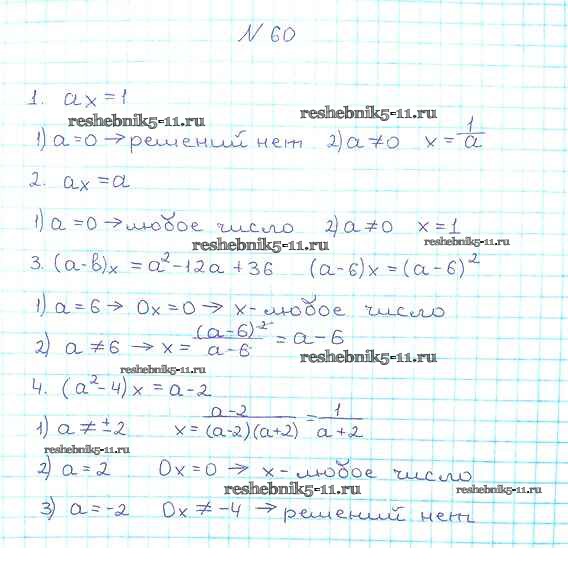 N 60
1. ax = 1
reshebnik5-11.ru reshebnik5-11.ru
1) a = 0 → решений нет 2) a ≠ 0 x = 1/a
2. ax = a
1) a = 0 → любое число 2) a ≠ 0 x = 1
reshebnik5-11.ru reshebnik5-11.ru
3. (a-в)x = a² - 12a + 36 (a-6)x = (a-6)²
1) a = 6 → 0x = 0 → x - любое число
2) a ≠ 6 → x = (a-6)²/a-6 = a-6
reshebnik5-11.ru
reshebnik5-11.ru
4. (a²-4)x = a-2
1) a ≠ ±2 x = a-2/(a-2)(a+2) = 1/a+2
reshebnik5-11.ru
2) a = 2 0x = 0 → x - любое число
reshebnik5-11.ru reshebnik5-11.ru
3) a = -2 0x ≠ -4 → решений нет